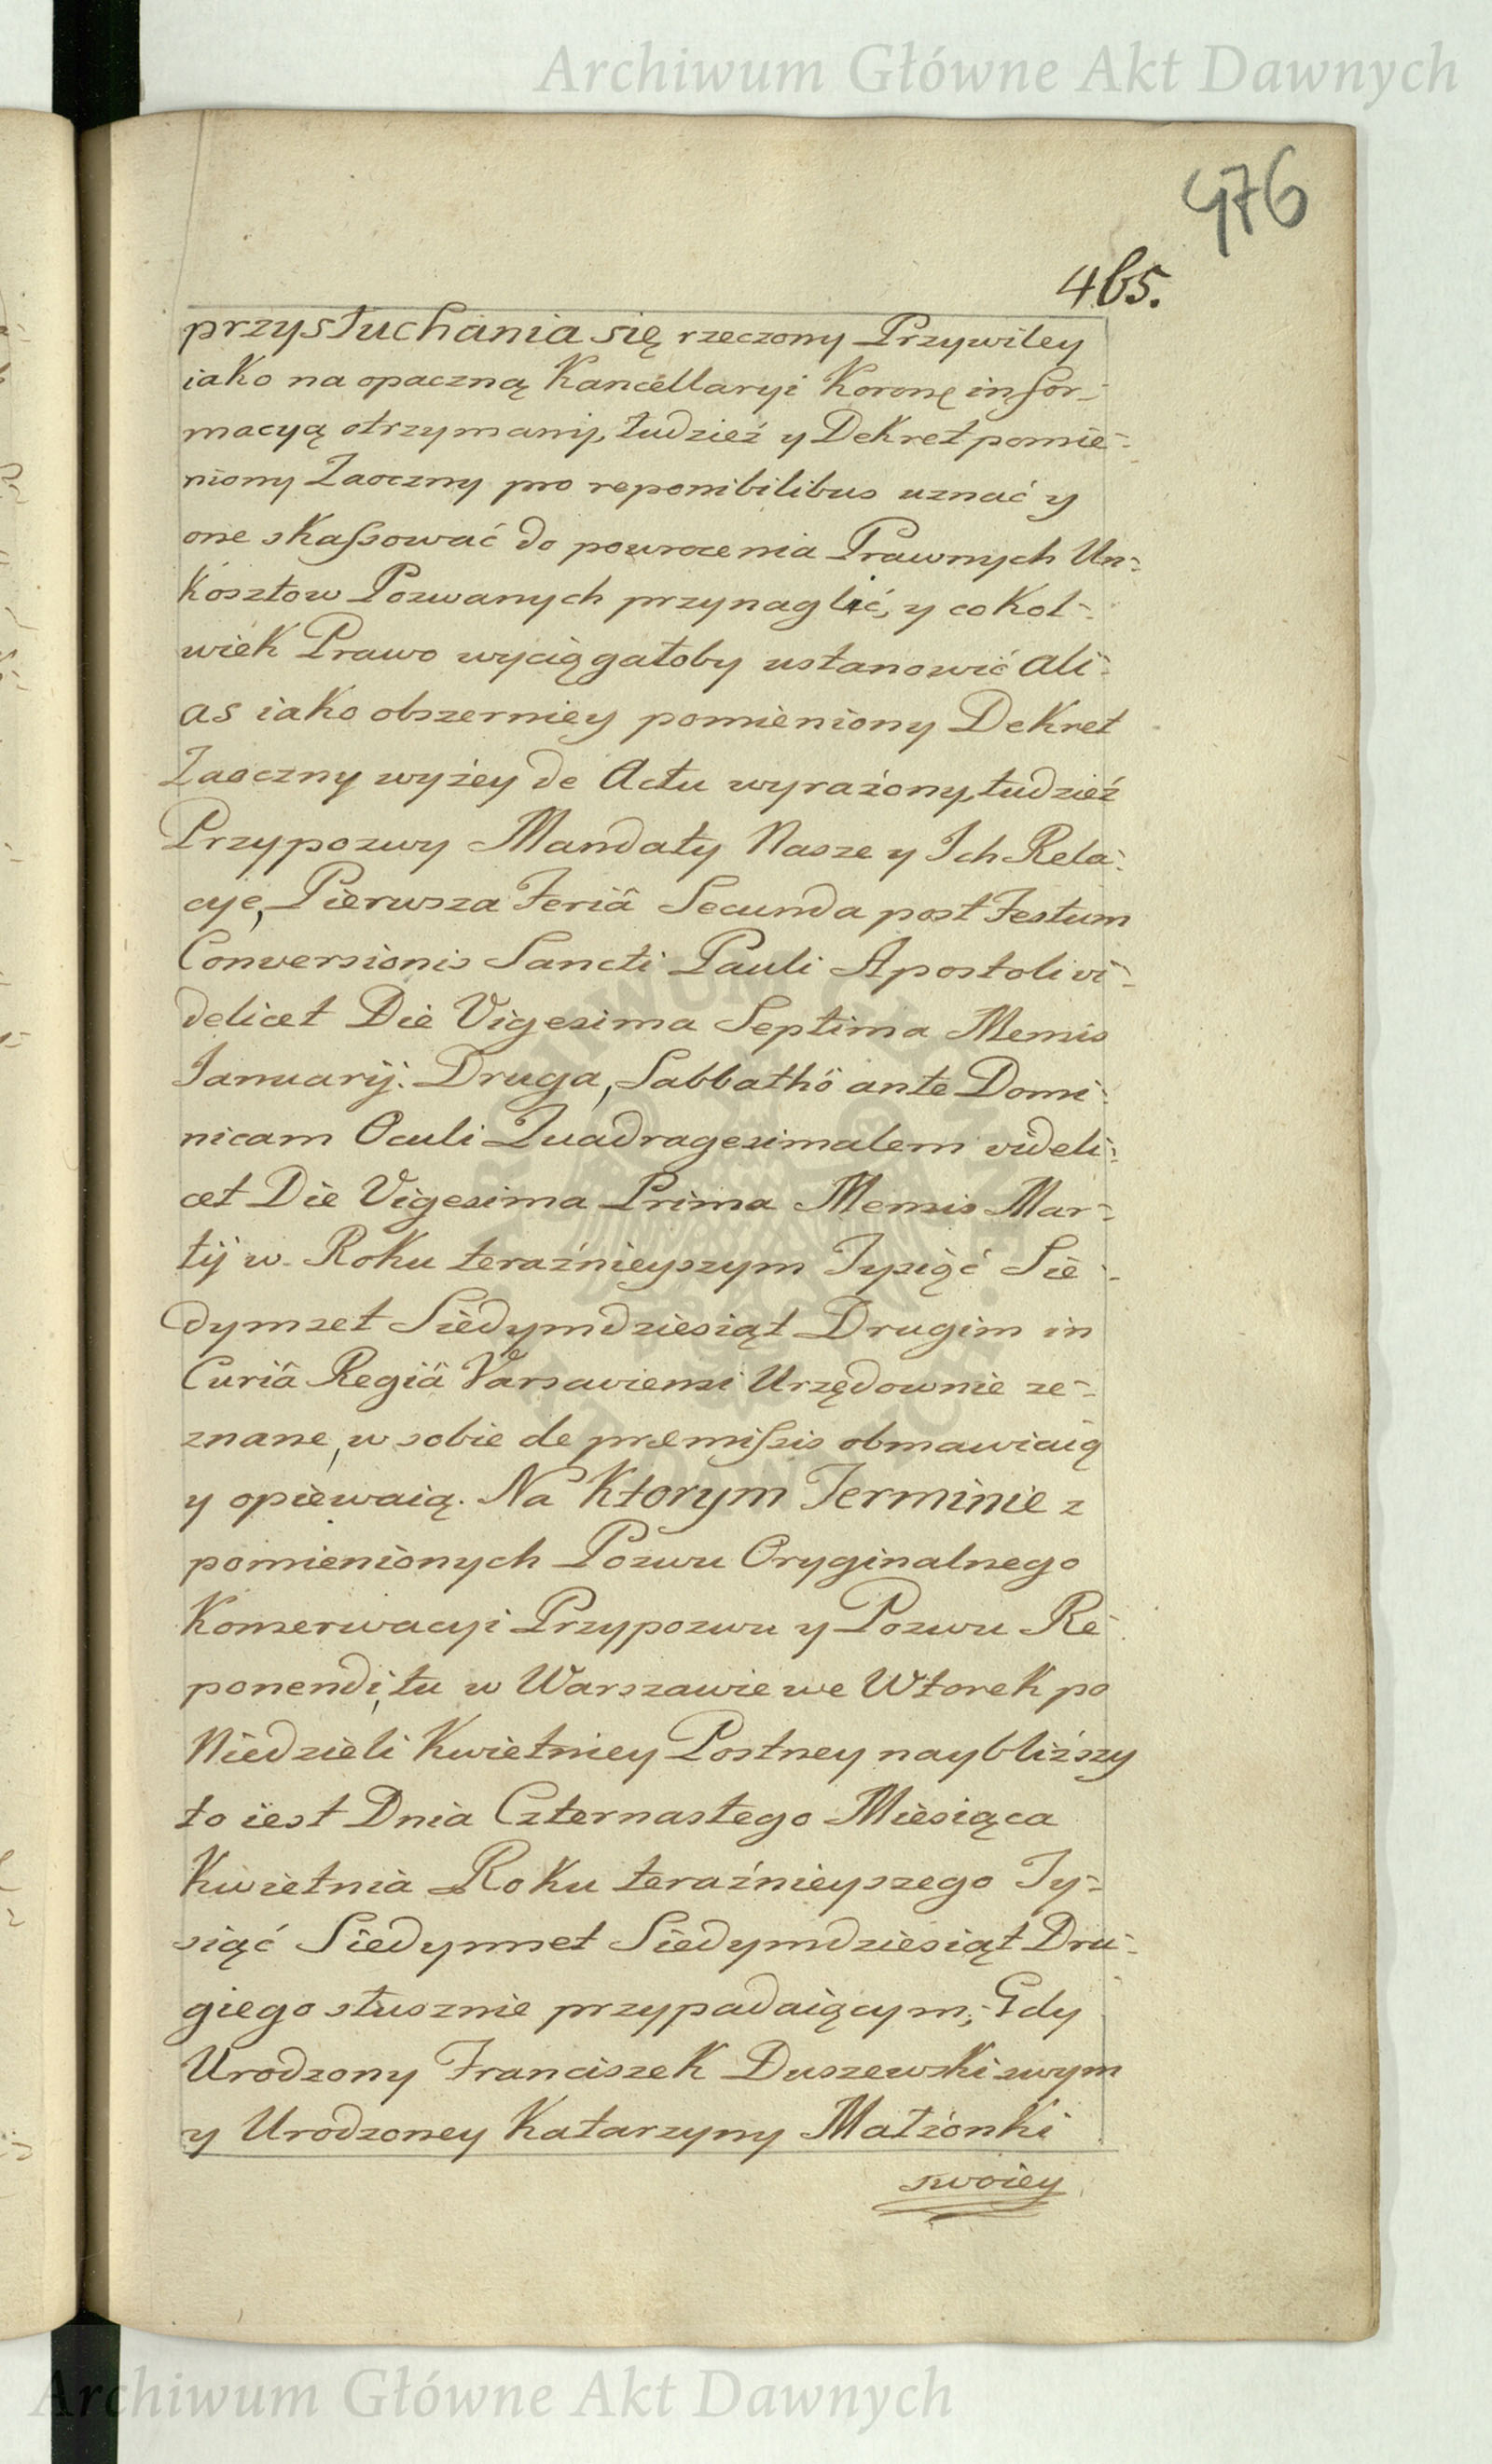 Archiwum Główne Akt Dawnych
476
465.
przysłuchania się rzeczony Przywiley
iako na opaczną Kancellaryi Koronę infor=
macyą otrzymany, tudzież y Dekret pomie=
niony Zaoczny pro reponibilibus uznać y
one skassować do powrocenia Prawnych Un=
kosztow Pozwanych przynaglić, y cokol=
wiek Prawo wyciągałoby ustanowić ali=
as iako obszerniey pomieniony Dekret
Zaoczny wyżey de Actu wyrażony, tudzież
Przypozwy Mandaty Nasze y Ich Rela=
cye, Pierwsza Feriâ Secunda post Festum
Conversionis Sancti Pauli Apostoli vi=
delicet Die Vigesima Septima Mensis
Januarij. Druga, Sabbathô ante Domi=
nicam Oculi Quadragesimalem videli=
cet Die Vigesima Prima Mensis Mar=
tij w Roku teraźnieyszym Tysiąć Sie=
dymset Siedymdziesiąt Drugim in
Curiâ Regiâ Varsaviensi Urzędownie ze=
znane, w sobie de præmissis obmawiaią
y opiewaią. Na Ktorym Terminie z
pomienionych Pozwu Oryginalnego
Konserwacyi Przypozwu y Pozwu Re=
ponendi, tu w Warszawie we Wtorek po
Niedzieli Kwietniey Postney naybliższy
to iest Dnia Czternastego Miesiąca
Kwietnia Roku teraźnieyszego Ty=
siąć Siedymset Siedymdziesiąt Dru=
giego słusznie przypadaiącym, Gdy
Urodzony Franciszek Duszewski swym
y Urodzoney Katarzyny Małżonki
swoiey
Archiwum Główne Akt Dawnych